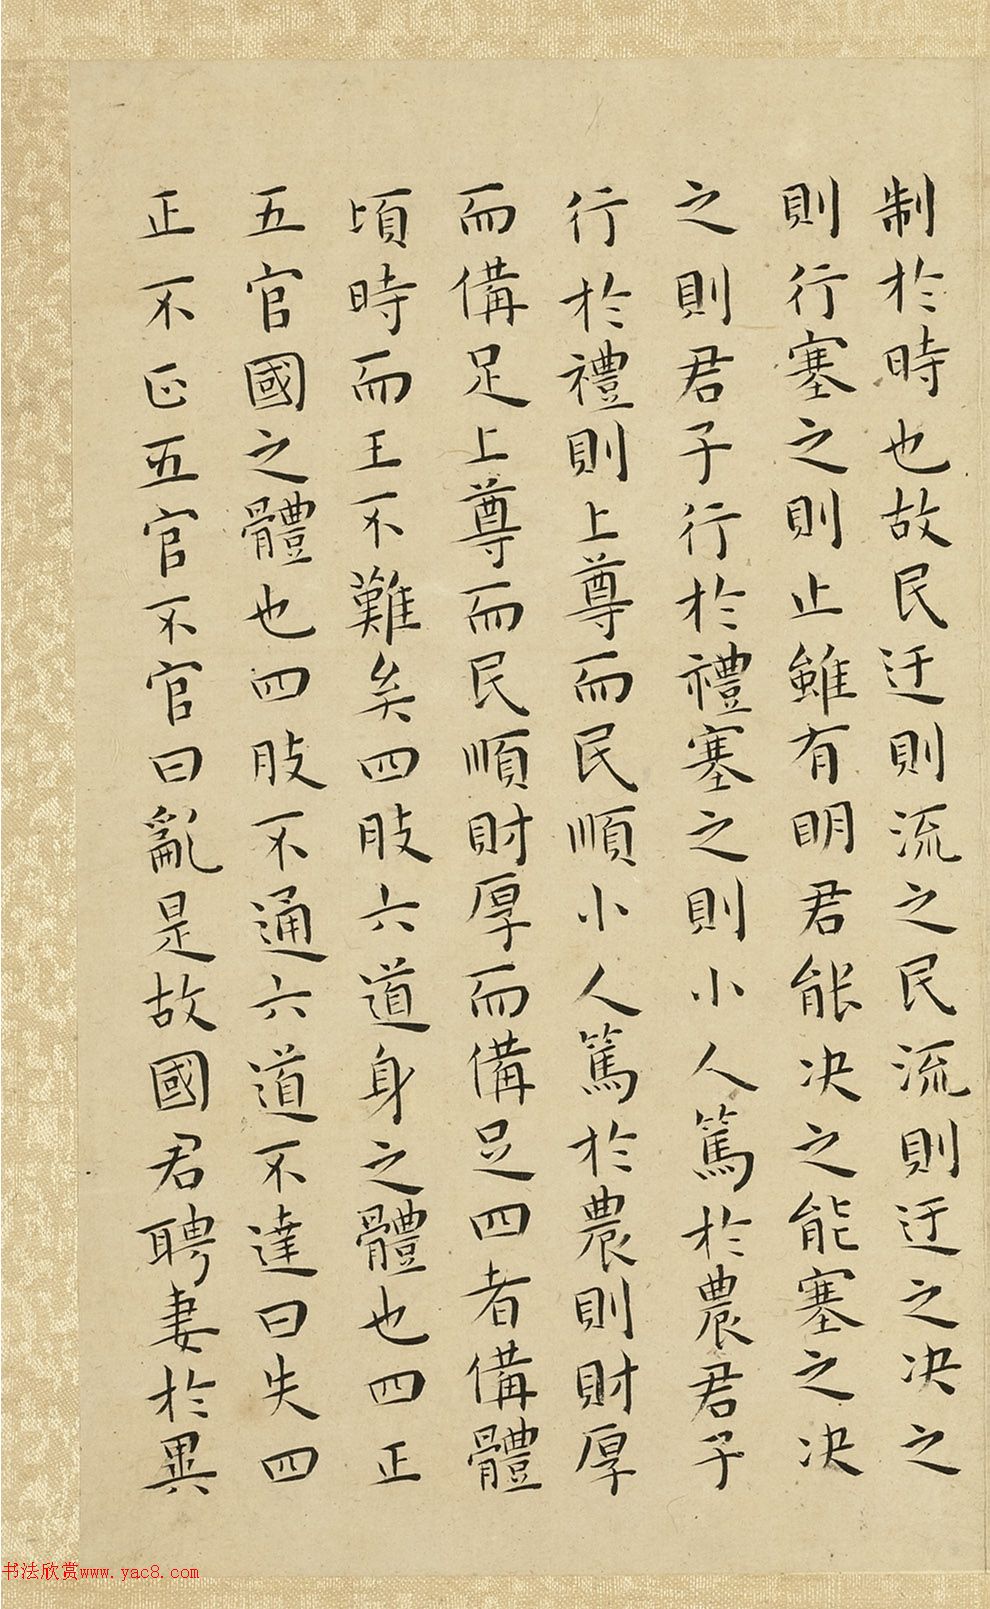 制於時也故民迂則流之民流則迂之决之
則行塞之則止雖有明君能决之能塞之决
之則君子行於禮塞之則小人篤於農君子
行於禮則上尊而民順小人篤於農則財厚
而備足上尊而民順財厚而備足四者備體
頃時而王不難矣四肢六道身之體也四正
五官國之體也四肢不通六道不達曰失四
正不正五官不官曰亂是故國君聘妻於異
书法欣赏www.yac8.com